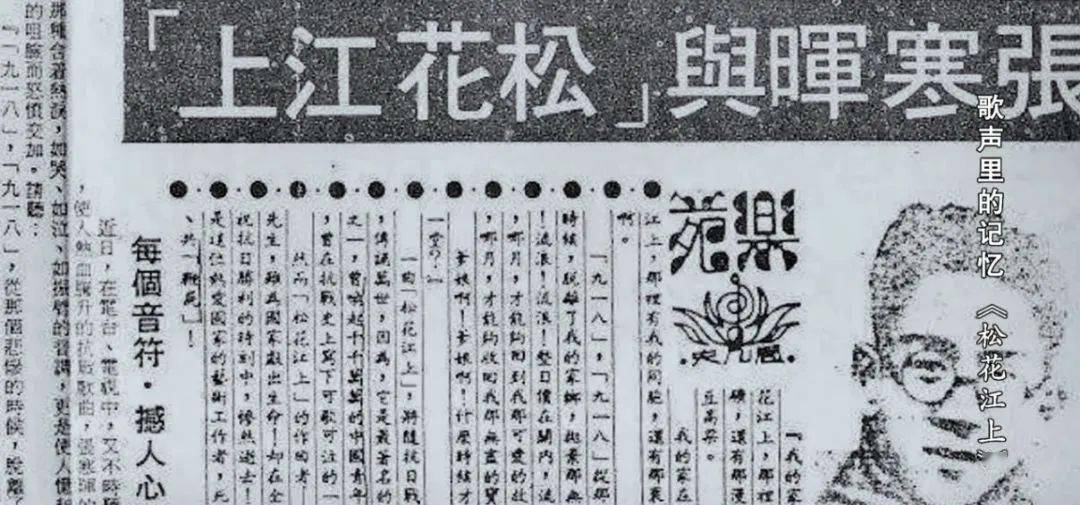 張寒暉與「松花江上」
歌声里的记忆《松花江上》
樂苑
『我的家
花江上，那裡
礦，還有那漫
豆高粱。
我的家在
江上，那裡有我的同胞，還有那衰
啊。
「九一八」，「九一八」從那
時候，脫離了我的家鄉，拋棄那無
！流浪！流浪！整日價在關內，流
，哪月，才能夠回到我那可愛的故
，哪月，才能夠收回我那無盡的寶
爹娘啊！爹娘啊！什麼時候才
一堂？』
一曲「松花江上」，將隨抗日戰
，傳誦萬世，因為，它是最著名的
之一，曾喚起千千萬萬的中國青年
，曾在抗戰史上寫下可歌可泣的一
然而「松花江上」的作曲者—
先生，雖為國家獻出生命！却在全
祝抗日勝利的時刻中，慘然逝去！
是這位熱愛國家的藝術工作者，死
、共一鞭屍」！
每個音符．撼人心
近日，在電台、電視中，又不時聽
，使人熱血騰升的抗戰歌曲，張寒暉的
那幾合着熱淚，如哭、如泣、如振臂的音調，更是使人憶
的咀臉而怒憤交加。請聽：
『「九一八」，「九一八」，從那個悲慘的時候，脫離了